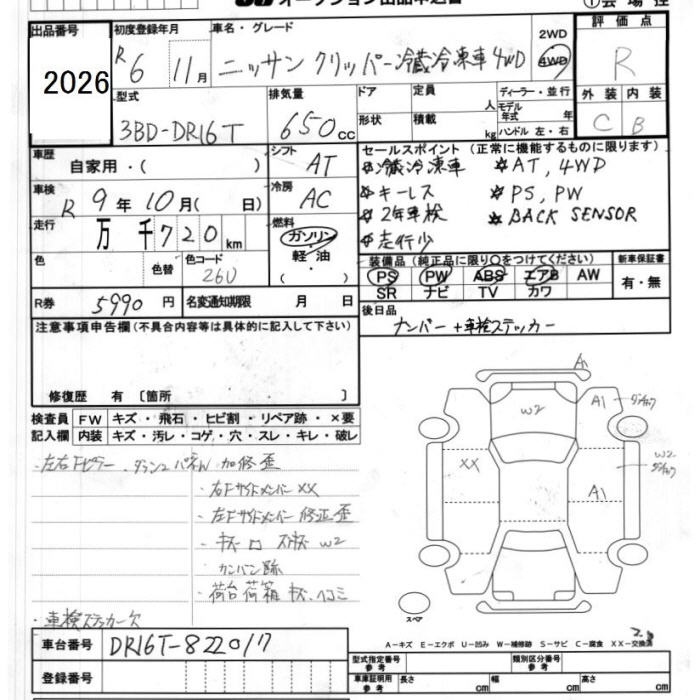 オークション出品申込書
①会場控
出品番号 初度登録年月 車名・グレード 2WD 4WD 評価点
2026 R6 11月 ニッサン クリッパー冷蔵冷凍車4WD R
型式 排気量 ドア 定員 人 ディーラー・並行 外装 内装
3BD-DR16T 650cc 形状 積載 kg モデル年式 年 ハンドル 左・右 C B
車歴 自家用・( ) シフト AT セールスポイント(正常に機能するものに限ります)
冷蔵冷凍車 AT, 4WD
車検 R 9年10月( 日) 冷房 AC キーレス PS, PW
2年車検 BACK SENSOR
走行 万 千720km 燃料 ガソリン 軽油 ・( ) 走行少
色 色替 色コード 26U 装備品(純正品に限り○をつけてください) 新車保証書
PS PW ABS エアB AW 有・無
SR ナビ TV カワ
R券 5990円 名変通知期限 月 日 後日品
ナンバー+車検ステッカー
注意事項申告欄(不具合内容等は具体的に記入して下さい)
修復歴 有〔箇所 〕
検査員 FW キズ・飛石・ヒビ割・リペア跡・×要
記入欄 内装 キズ・汚レ・コゲ・穴・スレ・キレ・破レ
・左右Fピラー
・右Fサイドメンバー XX
・左Fサイドメンバー 修正歪
W2
カンバン跡
・荷台荷箱 キズ、ヘコミ
・車検ステッカー欠
A
W2
A1
XX
A1
W2
スペア
A-キズ E-エクボ U-凹み W-補修跡 S-サビ C-腐食 XX-交換済
車台番号 DR16T-822017
登録番号
型式指定番号 参考 類別区分番号 参考
車庫証明用 参考 長さ cm 幅 cm 高さ cm